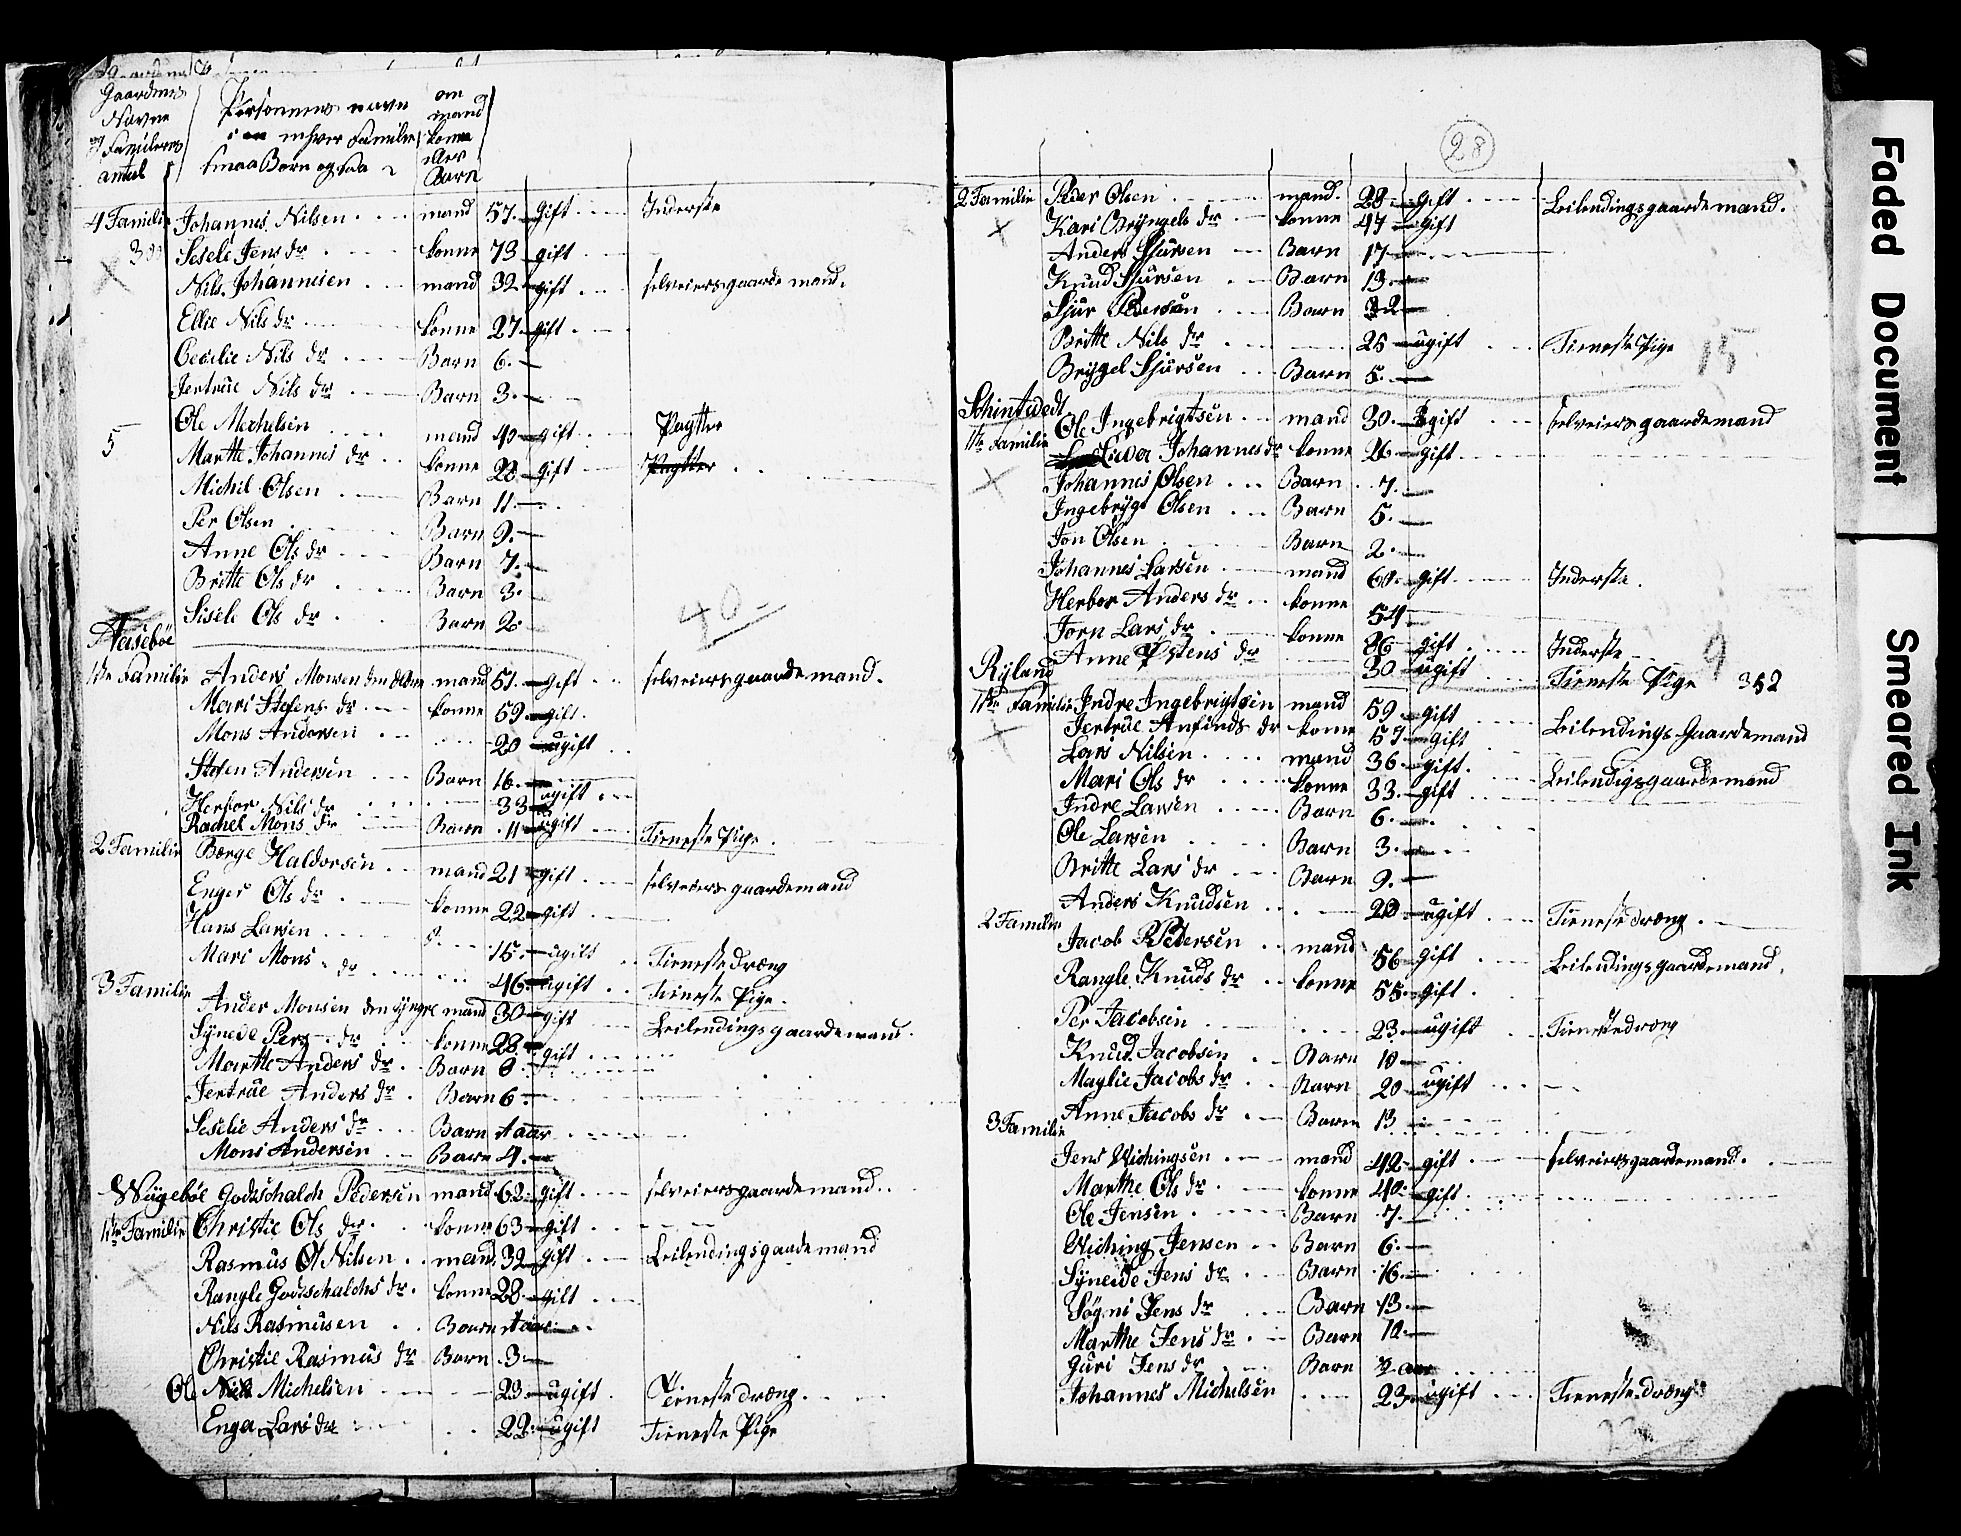 Gaardenes Navne og Familiens antal | Personernes navn i en enhver Familie smaa Børn ogsaa | om mand konne eller Barn
4 Familie Johannes Nilsen mand 57 gift Inderste
Sesele Jens dr konne 73 gift
Nils Johannesen mand 32 gift selveiersgaardemand.
Ellie Nils dr konne 27 gift
Cecelie Nils dr Barn 6
Jertrue Nils dr Barn 3
5 Ole Michelsen mand 40 gift Pagtter
Marthe Johannes dr konne 28 gift Pagtter
Michil Olsen Barn 11
Per Olsen Barn 9
Anne Ols dr Barn 7
Britte Ols dr Barn 3
Sisele Ols dr Barn 2
40
Aasebøe
1te Familie Anders Monsen den Ældre mand 51 gift selveiersgaardemand.
Mari Stefens dr konne 59 gift
Mons Andersen 20 ugift
Stefen Andersen Barn 16 ugift
Herbor Nils dr 33
Rachel Mons dr Barn 11 ugift Tieneste Pige.
2 Familie Børge Haldorsen mand 21 gift selveiersgaardemand
Enger Ols dr konne 22 gift
Hans Larsen 15 ugift Tienestedræng
Mari Mons dr 46 ugift Tieneste Pige.
3 Familie Ander Monsen den yngre mand 30 gift Leilendingsgaardemand.
Synede Pers dr konne 28 gift
Marthe Anders dr Barn 8
Jertrue Anders dr Barn 6
Seselie Anders dr Barn 1 aar
Mons Andersen Barn 4
Wügebøe Godtschalch Pedersen mand 62 gift selveiersgaardemand.
1te Familie Christie Ols dr konne 63 gift
Rasmus Ol Nilsen mand 32 gift Leilendingsgaardemand
Rangle Godtschalchs dr konne 28 gift
Nils Rasmusen Barn 1 aar
Christie Rasmus dr Barn 3
Ole Michelsen 23 ugift Tienestedræng.
Enger Lars dr 22 ugift Tieneste Pige
28
2 Familie Peder Olsen mand 28 gift Leilendingsgaardemand.
Kari Bryngels dr konne 47 gift
Anders Sjursen Barn 17
Knud Sjursen Barn 13
Sjur Pedersen Barn
Britte Nils dr 25 ugift Tieneste Pige
15
Brygel Sjursen Barn 5
Schintvedt
1te Familie Ole Ingebrigtsen mand 30 gift selveiersgaardemand
Johannes dr konne 26 gift
Johannes Olsen Barn 7
Ingebrygt Olsen Barn 5
Jon Olsen Barn 2
Johannes Larsen mand 60 gift Inderste.
Herbor Anders dr konne 54
Jorn Lars dr konne 86 gift Inderste
9
Anne Østens dr 30 ugift Tieneste Pige 352
Ryland
1te Familie Indre Ingebrigtsen mand 59 gift Leilendings Gaardemand
Jertrue Anfinds dr konne 57 gift
Lars Nilsen mand 36 gift Leilendigsgaardemand
Mari Ols dr konne 33 gift
Indre Larsen Barn 6
Ole Larsen Barn 3
Britte Lars dr Barn 9
Anders Knudsen 20 ugift Tienestedræng.
2 Familie Jacob Pedersen mand 56 gift Leilendingsgaardemand.
Rangle Knuds dr konne 55 gift
Per Jacobsen 23 ugift Tienestedræng
Knud Jacobsen Barn 10
Maylie Jacobs dr Barn 20 ugift
Anne Jacobs dr Barn 13
3 Familie Jens Wichingsen mand 42 gift selveiersgaardemand.
Marthe Ols dr konne 40 gift
Ole Jensen Barn 7
Wiching Jensen Barn 6
Syneide Jens dr Barn 16
Søgni Jens dr Barn 13
Marthe Jens dr Barn 10
Guri Jens dr Barn aar
Johannes Michelsen 23 ugift Tienestedræng
Faded Document
Smeared Ink